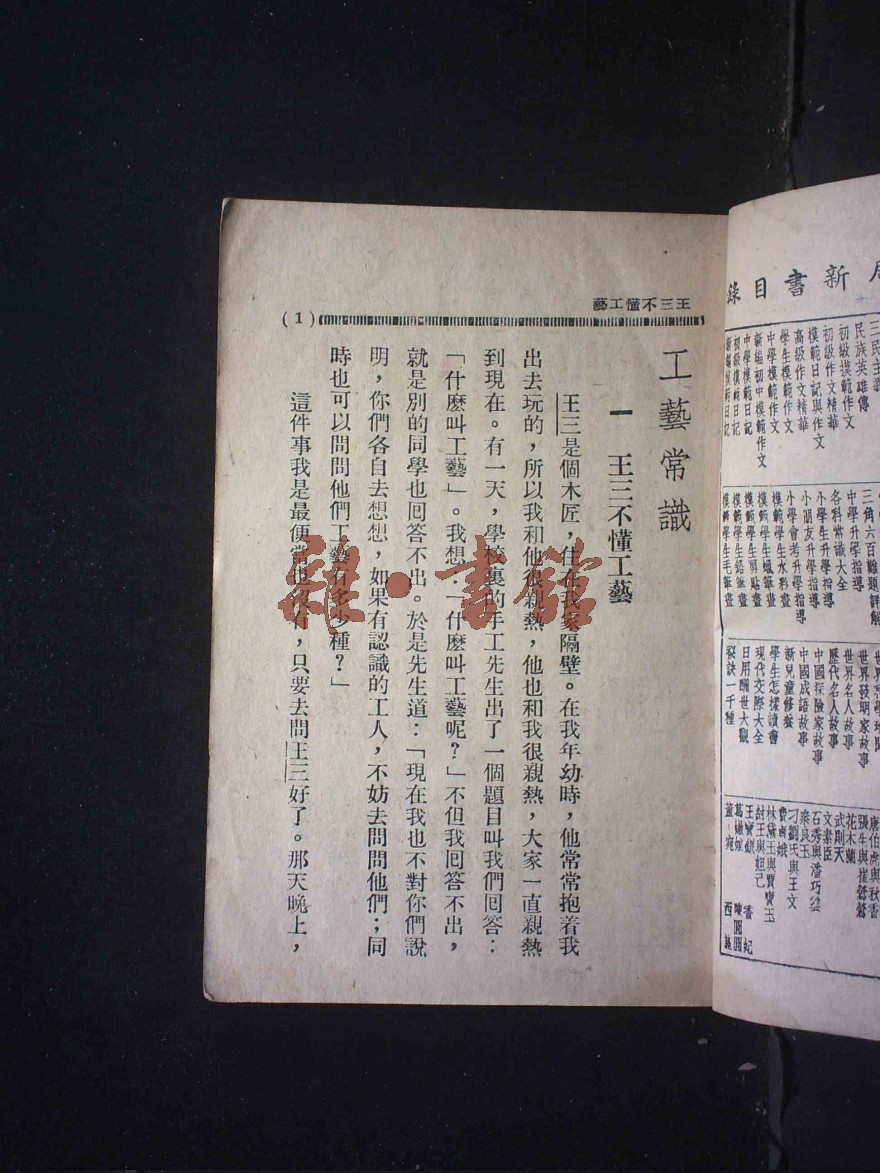 王三不懂工藝
(1)
工藝常識
一　王三不懂工藝
王三是個木匠，住在我家隔壁。在我年幼時，他常常抱着我
出去玩的，所以我和他很親熱，他也和我很親熱，大家一直親熱
到現在。有一天，學校裏的手工先生出了一個題目叫我們囘答：
「什麽叫工藝」。我想：「什麽叫工藝呢？」不但我囘答不出，
就是別的同學也囘答不出。於是先生道：「現在我也不對你們說
明，你們各自去想想，如果有認識的工人，不妨去問問他們；同
時也可以問問他們工藝有多少種？」
這件事我是最便當也沒有，只要去問王三好了。那天晚上，
雜·書館
新書目錄
三民主義
民族英雄傳
初級模範作文
初級作文精華
模範日記與作文
高級作文精華
學生模範作文
中學模範作文
新編初中模範作文
中學模範日記
初級模範日記
新編模範日記
三角六百難題詳解
中學升學指導
各科常識大全
小學生升學指導
小朋友升學指導
小學會考升學指導
模範學生水彩畫
模範學生蠟筆畫
模範學生剪貼畫
模範學生鉛筆畫
模範學生毛筆畫
世界發明家故事
世界名人故事
歷代名人故事
中國探險家故事
中國成語故事
新兒童修養
學生怎樣讀書
現代交際大全
日用酬世大觀
秘訣一千種
唐伯虎與秋香
張生與崔鶯鶯
花木蘭
武則天
文素臣
石秀與潘巧雲
秦良玉
刁劉氏與王文
費貞娥
林黛玉與賈寶玉
紂王與妲己
王寶釧　香妃
葛嫩娘　陳圓圓
董小宛　西施